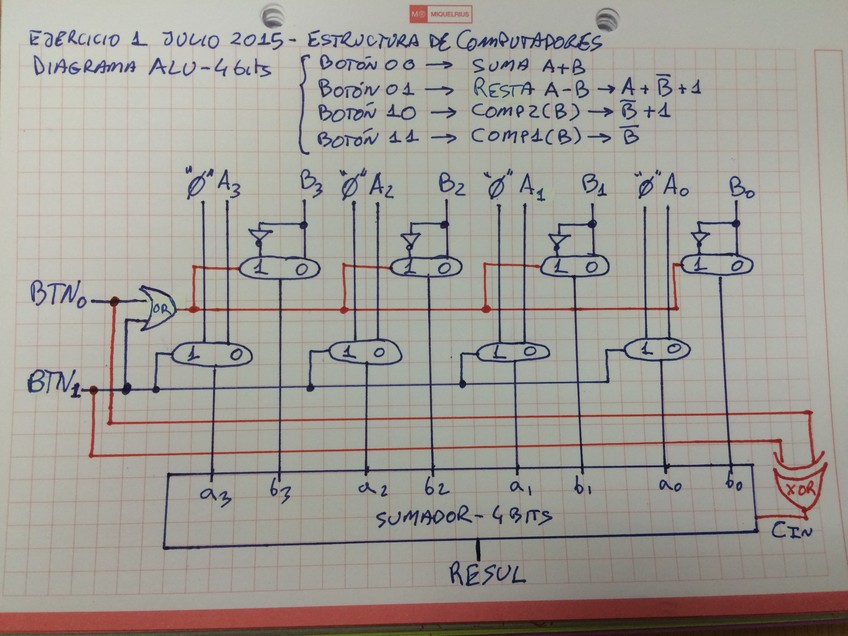 M® MIQUELRIUS
EJERCICIO 1 JULIO 2015 - ESTRUCTURA DE COMPUTADORES
DIAGRAMA ALU - 4 bits
BOTÓN 00 → SUMA A+B
BOTÓN 01 → RESTA A-B → A + B̅ + 1
BOTÓN 10 → COMP2(B) → B̅ + 1
BOTÓN 11 → COMP1(B) → B̅
"Ø" A₃ B₃ "Ø" A₂ B₂ "Ø" A₁ B₁ "Ø" A₀ B₀
1 0 1 0 1 0 1 0
BTN₀ OR
1 0 1 0 1 0 1 0
BTN₁
a₃ b₃ a₂ b₂ a₁ b₁ a₀ b₀ XOR
SUMADOR - 4 BITS
CIN
RESUL